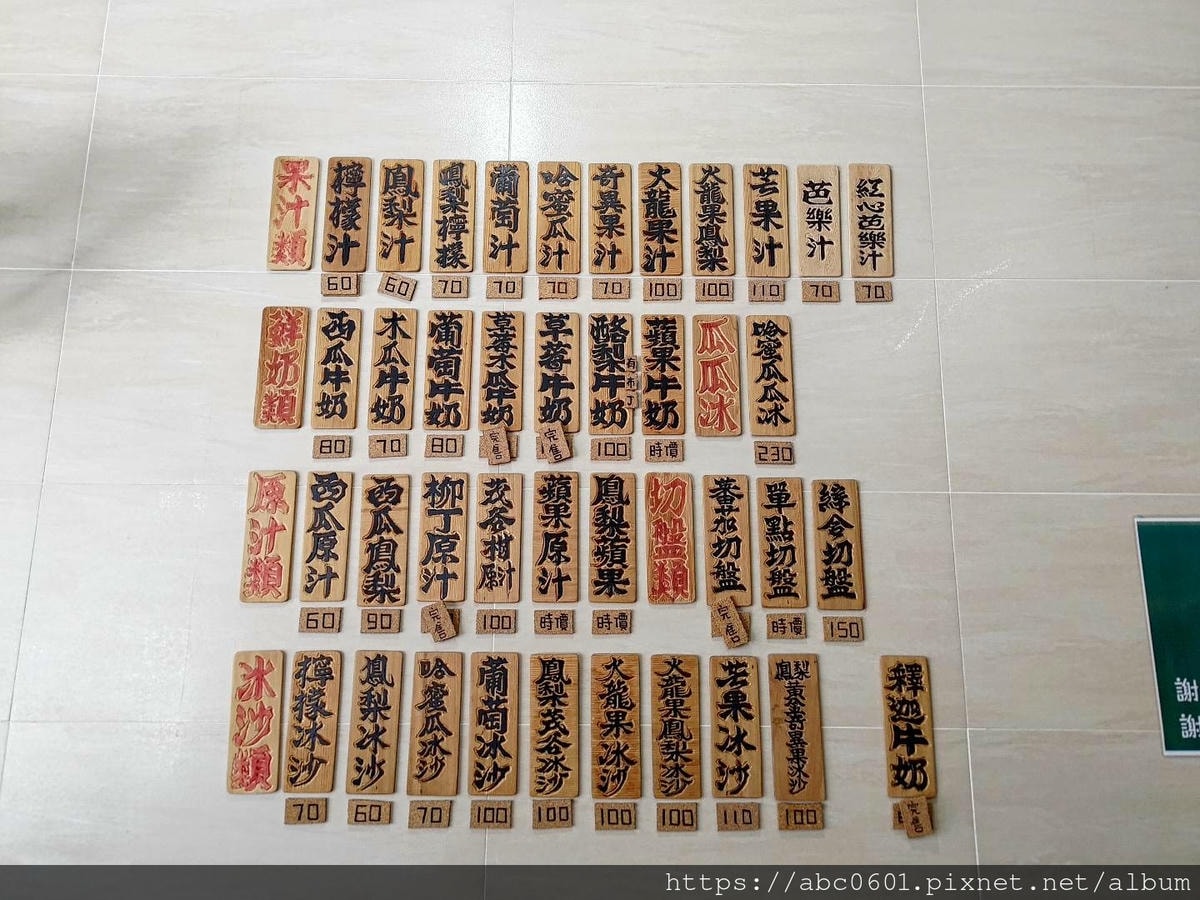 果汁類
檸檬汁
60
鳳梨汁
60
鳳梨檸檬
70
葡萄汁
70
哈蜜瓜汁
70
奇異果汁
70
火龍果汁
100
火龍果鳳梨
100
芒果汁
110
芭樂汁
70
紅心芭樂汁
70
鮮奶類
西瓜牛奶
80
木瓜牛奶
70
葡萄牛奶
80
草莓木瓜牛奶
完售
草莓牛奶
完售
酪梨牛奶
有布丁
100
蘋果牛奶
時價
瓜瓜冰
哈蜜瓜瓜冰
230
原汁類
西瓜原汁
60
西瓜鳳梨
90
柳丁原汁
完售
茂谷柑原汁
100
蘋果原汁
時價
鳳梨蘋果
時價
切盤類
蕃茄切盤
完售
單點切盤
時價
綜合切盤
150
冰沙類
檸檬冰沙
70
鳳梨冰沙
60
哈蜜瓜冰沙
70
葡萄冰沙
100
鳳梨茂谷冰沙
100
火龍果冰沙
100
火龍果鳳梨冰沙
100
芒果冰沙
110
鳳梨黃金奇異果冰沙
100
釋迦牛奶
完售
謝
謝
https://abc0601.pixnet.net/album